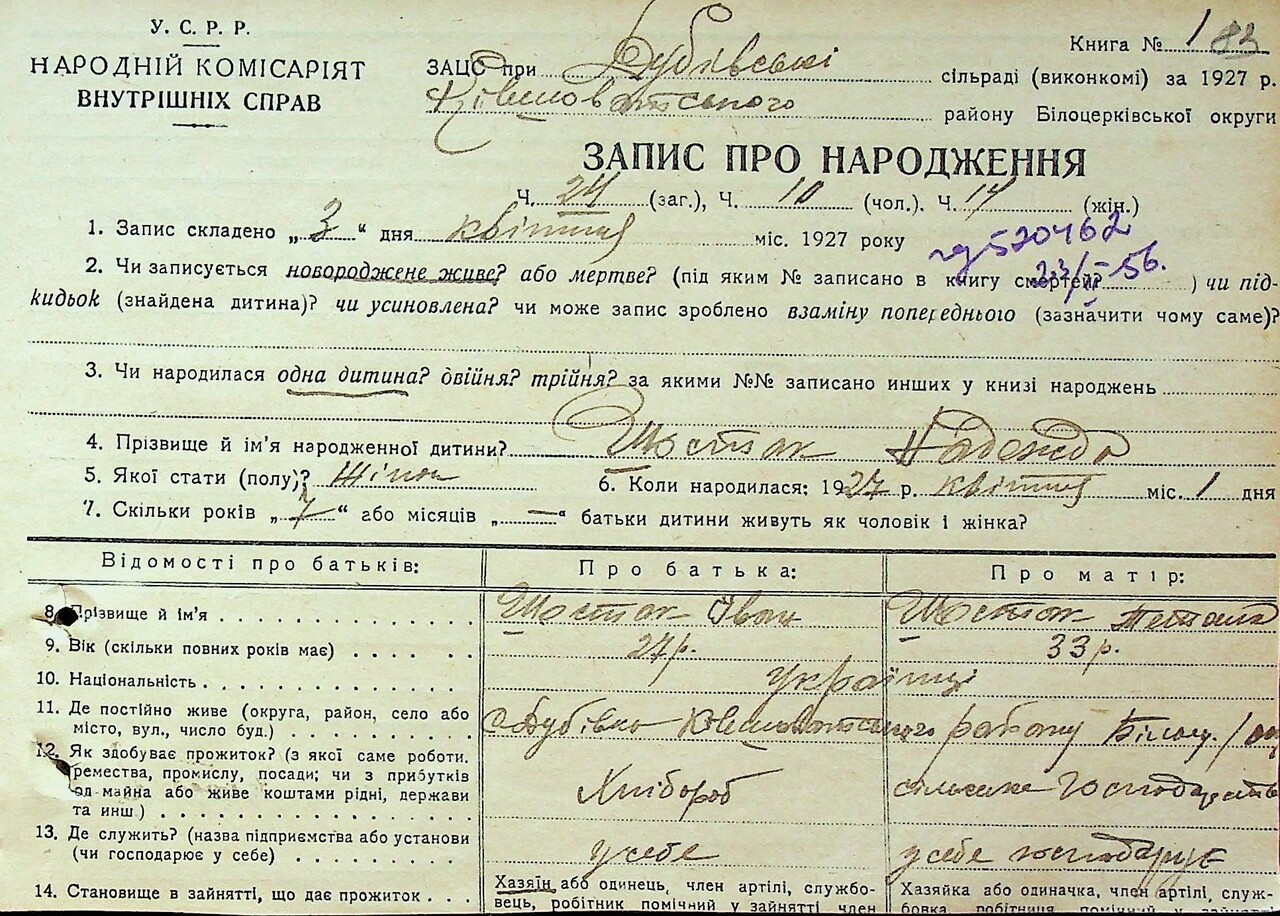 У. С. Р. Р.
НАРОДНІЙ КОМІСАРІЯТ
ВНУТРІШНІХ СПРАВ
Книга № 1 83
ЗАЦС при Дубівські сільраді (виконкомі) за 1927 р.
Ківшоватського району Білоцерківської округи
ЗАПИС ПРО НАРОДЖЕННЯ
Ч. 24 (заг.), Ч. 10 (чол.). Ч. 14 (жін.)
1. Запис складено „3“ дня квітня міс. 1927 року
520462
2. Чи записується новороджене живе? або мертве? (під яким № записано в книгу смертей? ) чи під-
23/I-56.
кидьок (знайдена дитина)? чи усиновлена? чи може запис зроблено взаміну попереднього (зазначити чому саме)?
3. Чи народилася одна дитина? двійня? трійня? за якими №№ записано инших у книзі народжень
4. Прізвище й ім’я народженної дитини? Шостак Надежда
5. Якої стати (полу)? Жіноч 6. Коли народилася: 1927 р. квітня міс. 1 дня
7. Скільки років „7“ або місяців „—“ батьки дитини живуть як чоловік і жінка?
Відомості про батьків: Про батька: Про матір:
8. Прізвище й ім’я Шостак Іван Шостак Тетяна
9. Вік (скільки повних років має) 27 р. 33 р.
10. Національність Українці
11. Де постійно живе (округа, район, село або
місто, вул., число буд.) с Дубівка Ківшоватського району Білоц.
12. Як здобуває прожиток? (з якої саме роботи.
ремества, промислу, посади; чи з прибутків
од майна або живе коштами рідні, держави
та инш.) Хлібороб сільське Господарств
13. Де служить? (назва підприємства або установи
(чи господарює у себе) у себе у себе господарує
14. Становище в зайнятті, що дає прожиток
Хазяїн або одинець, член артілі, службо-
вець, робітник помічний у зайнятті член
Хазяйка або одиначка, член артілі, служ-
бовка, робітниця помічний у зайнятті